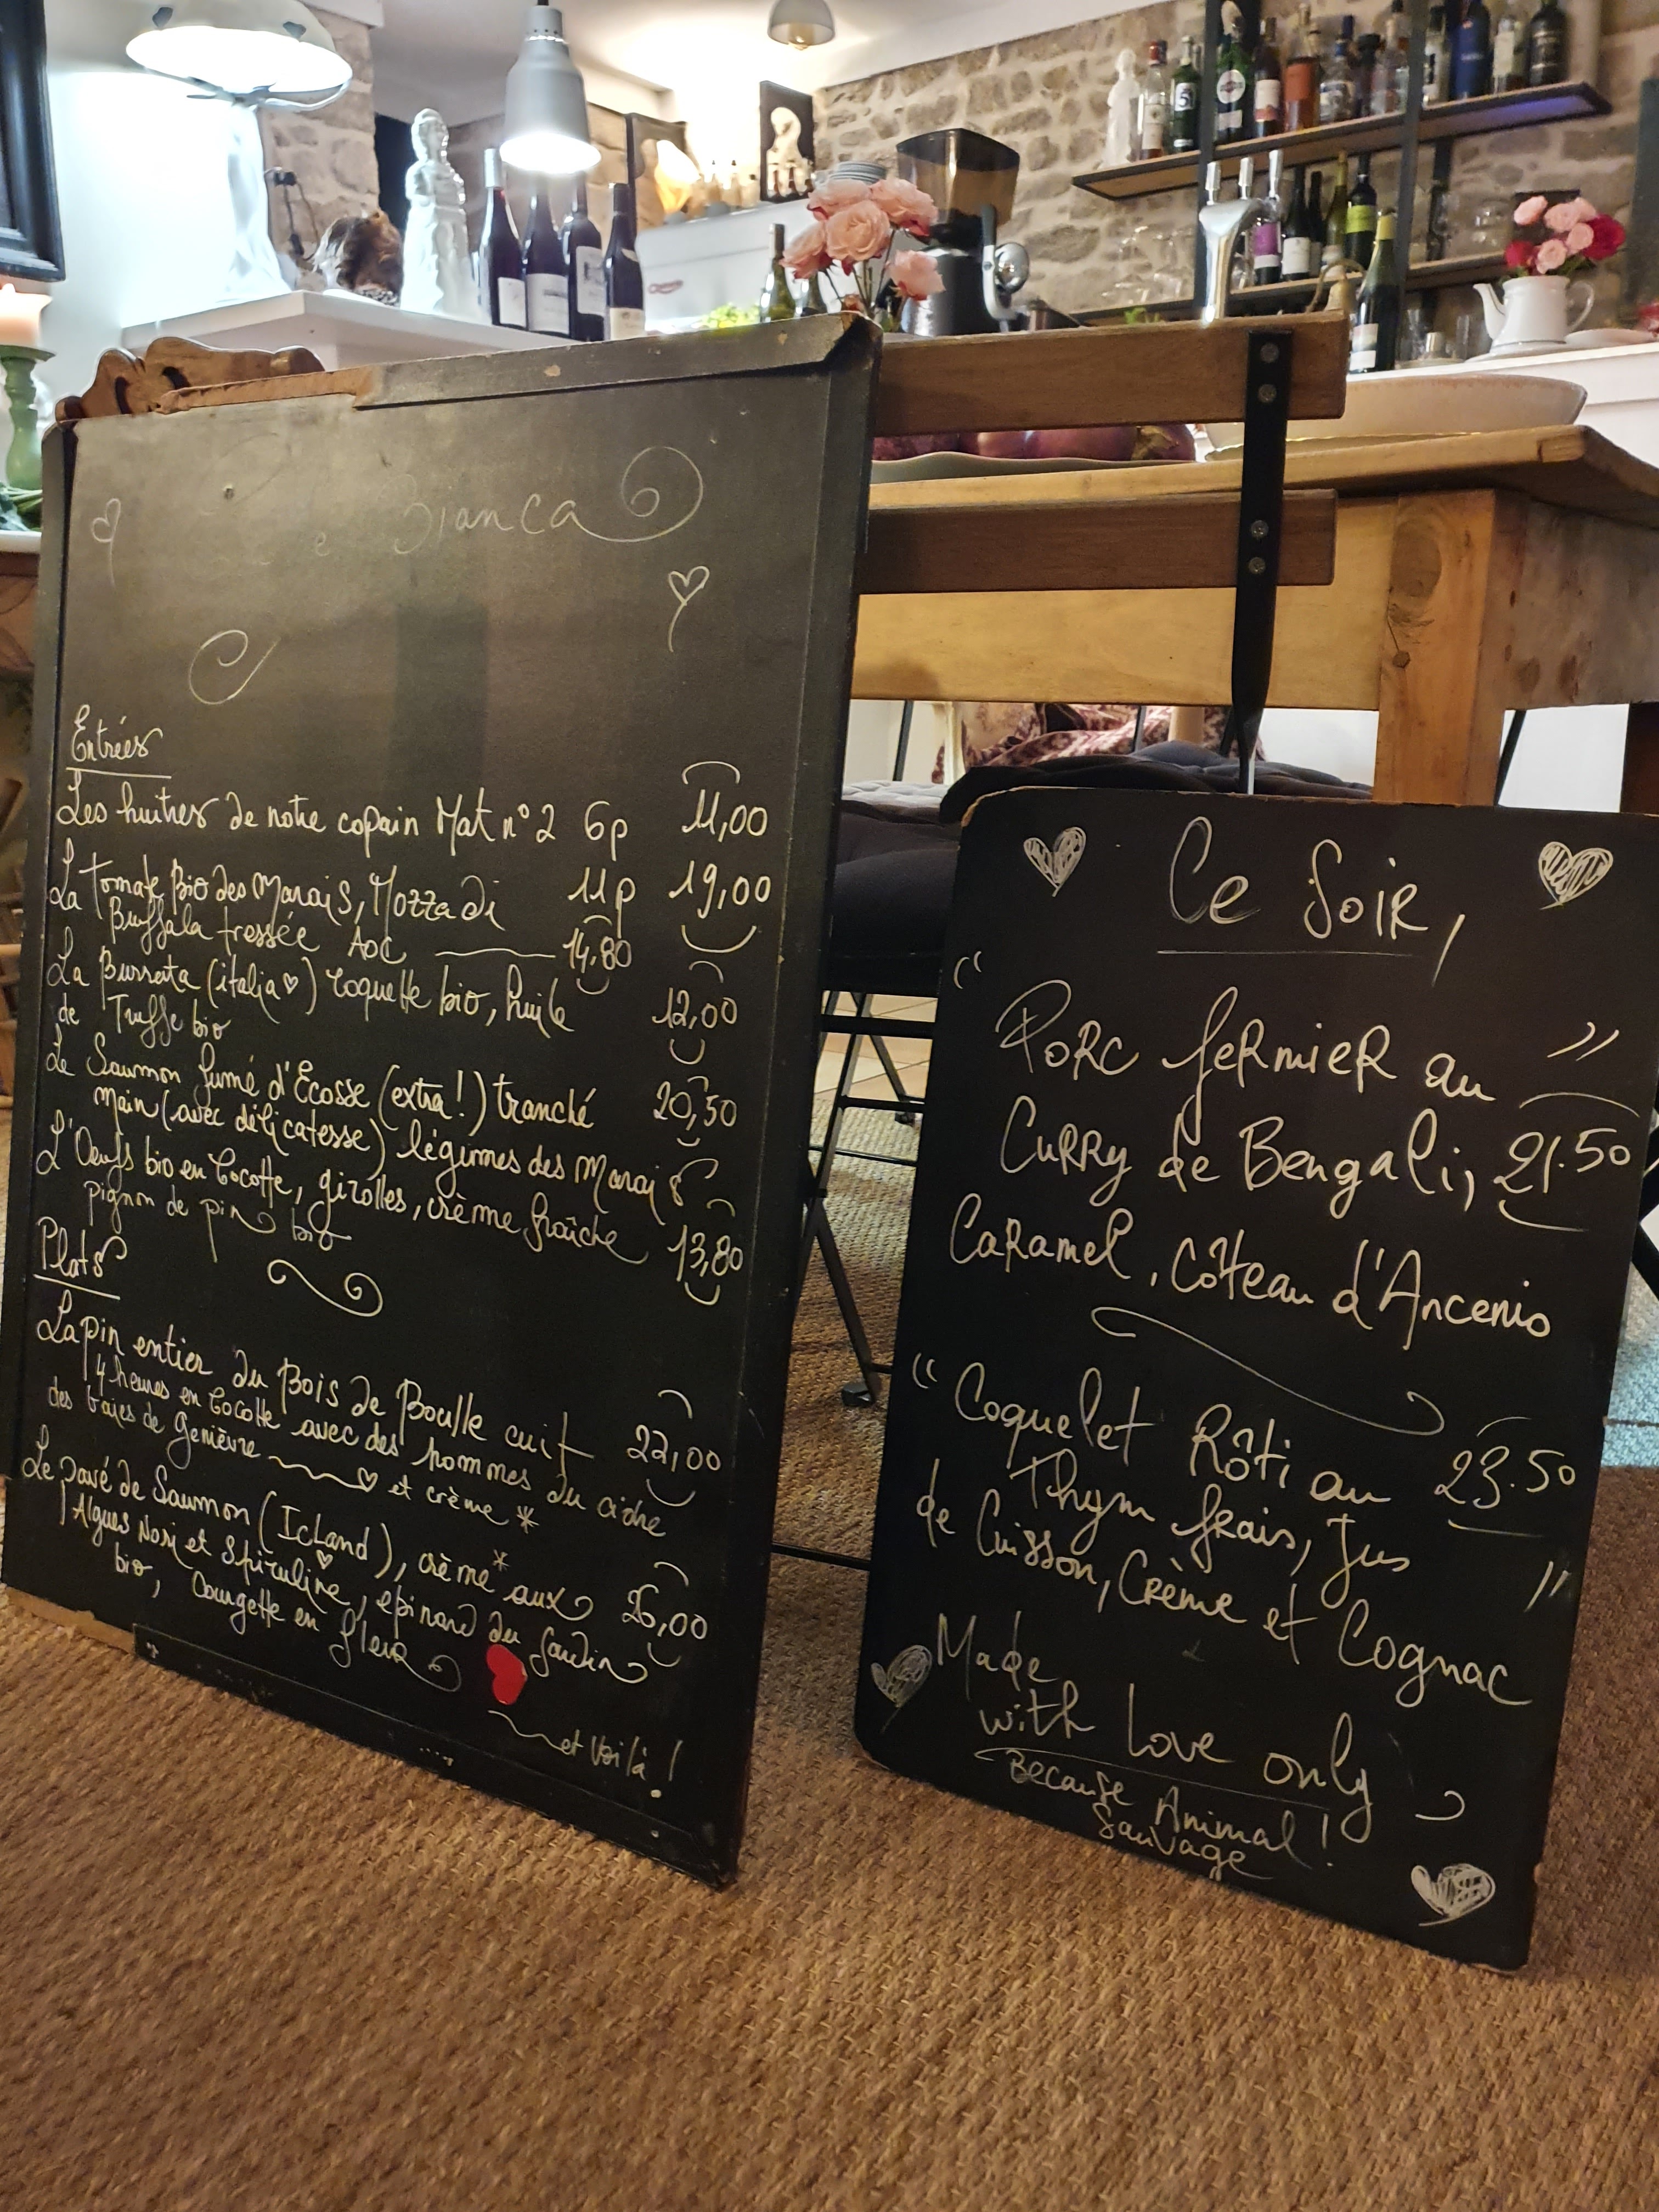 Bianca
Entrées
Les huitres de notre copain Mat n°2 6p 11,00
11p 19,00
La tomate Bio des Marais, Mozza di
Buffala tressée AOC 14,80
La Burrata (italia♡) roquette bio, huile
de Truffe bio 12,00
Le Saumon fumé d'Écosse (extra!) tranché 20,50
main (avec délicatesse) légumes des Marais
L'Oeufs bio en Cocotte, girolles, crème fraîche
pignon de pin bio 13,80
Plats
Lapin entier du Bois de Boulle cuit 22,00
4 heures en Cocotte avec des pommes du cidre
des baies de Genièvre ♡ et crème *
Le pavé de Saumon (Icland), crème* aux 26,00
Algues Nori et Spiruline, epinard du Jardin
bio, Courgette en fleur
et voilà!
Ce Soir,
"Porc fermier au "
Curry de Bengali, 21.50
Caramel, Côteau d'Ancenis
"Coquelet Rôti au 23.50
Thym frais, Jus
de Cuisson, Crème et Cognac "
Made
with Love only
Because Animal!
Sauvage